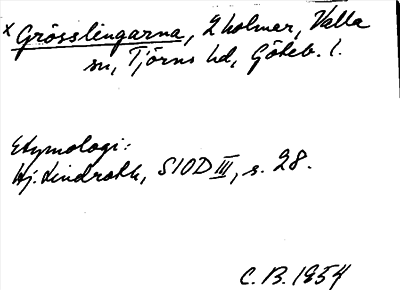 x Grösslingarna, 2 holmar, Valla
sn, Tjörns hd, Göteb. l.
Etymologi:
Hj. Lindroth, SIOD III, s. 28.
C. B. 1954